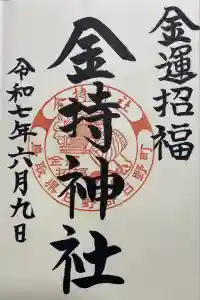 金運招福
金持神社
令和七年六月九日